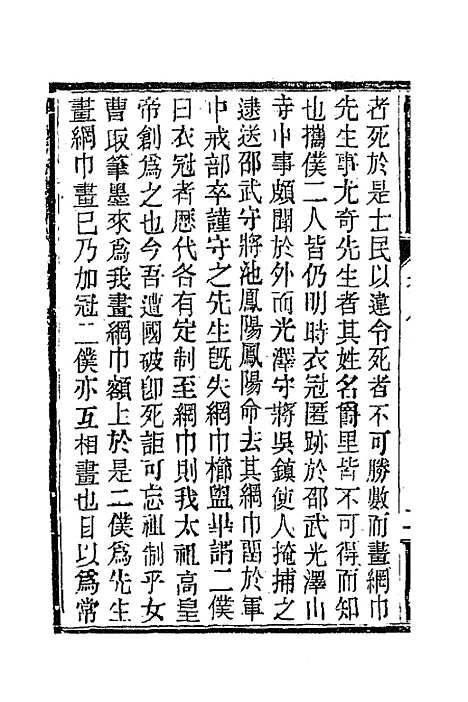 者死於是士民以違令死者不可勝數而畫網巾
先生事尤奇先生者其姓名爵里皆不可得而知
也攜僕二人皆仍明時衣冠匿跡於邵武光澤山
寺中事頗聞於外而光澤守將吳鎮使人掩捕之
逮送邵武守將池鳳陽鳳陽命去其網巾畱於軍
中戒部卒謹守之先生旣失網巾櫛盥畢謂二僕
曰衣冠者歷代各有定制至網巾則我太祖高皇
帝創爲之也今吾遭國破卽死詎可忘祖制乎女
曹取筆墨來爲我畫網巾額上於是二僕爲先生
畫網巾畫已乃加冠二僕亦互相畫也目以爲常